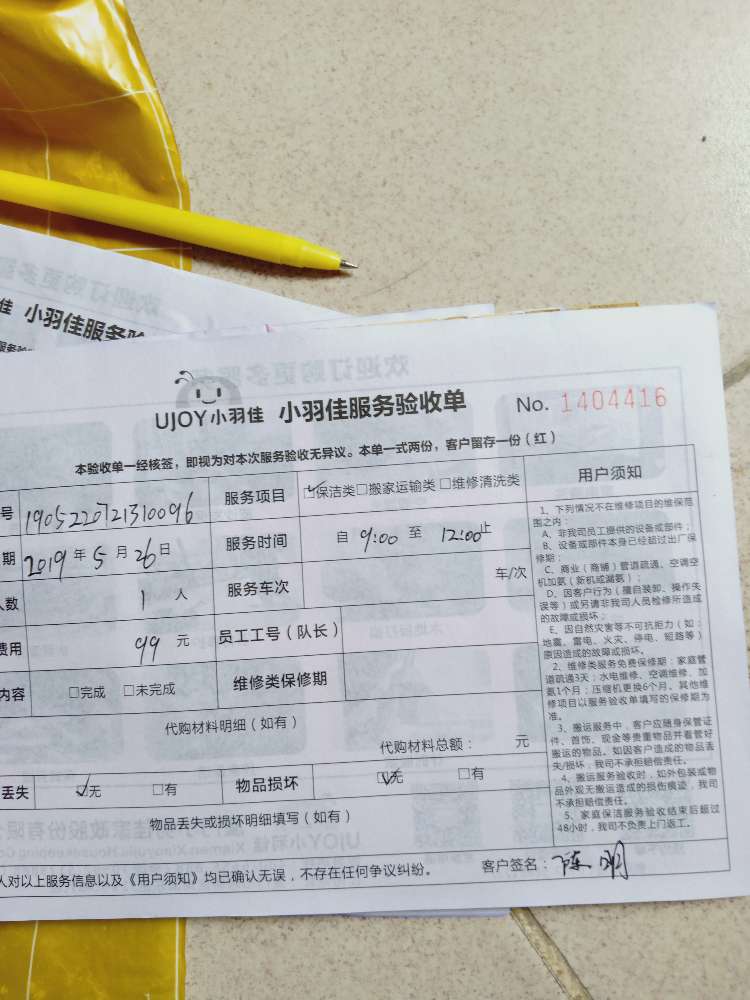 欢迎订购更多服
佳 小羽佳服务验
欢迎订购更多服
UJOY小羽佳 小羽佳服务验收单 No. 1404416
本验收单一经核签，即视为对本次服务验收无异议。本单一式两份，客户留存一份（红）
号 1905220721310096 服务项目 ☑保洁类□搬家运输类□维修清洗类 用户须知
期 2019年5月26日 服务时间 自 9:00 至 12:00止
人数 1 人 服务车次 车/次
费用 99 元 员工工号（队长）
内容 □完成 □未完成 维修类保修期
代购材料明细（如有）
代购材料总额： 元
丢失 ☑无 □有 物品损坏 ☑无 □有
物品丢失或损坏明细填写（如有）
人对以上服务信息以及《用户须知》均已确认无误，不存在任何争议纠纷。 客户签名：陈明
1、下列情况不在维修项目的维保范
围之内：
A、非我司员工提供的设备或部件；
B、设备或部件本身已经超过出厂保
修期；
C、商业（商铺）管道疏通、空调空
机加氨（新机或漏氨）；
D、因客户行为（擅自装卸、操作失
误等）或另请非我司人员检修所造成
的故障或损坏；
E、因自然灾害等不可抗拒力（如：
地震、雷电、火灾、停电、短路等）
原因造成的故障或损坏。
2、维修类服务免费保修期：家庭管
道疏通3天；水电维修、空调维修、加
氨1个月；压缩机更换6个月。其他维
修项目以服务验收单填写的保修期为
准。
3、搬运服务中，客户应随身保管证
件、首饰、现金等贵重物品并看管好
搬运的物品。如因客户造成的物品丢
失/损坏，我司不承担赔偿责任。
4、搬运服务验收时，如外包装或物
品外观无搬运造成的损伤痕迹，我司
不承担赔偿责任。
5、家庭保洁服务验收结束后超过
48小时，我司不负责上门返工。